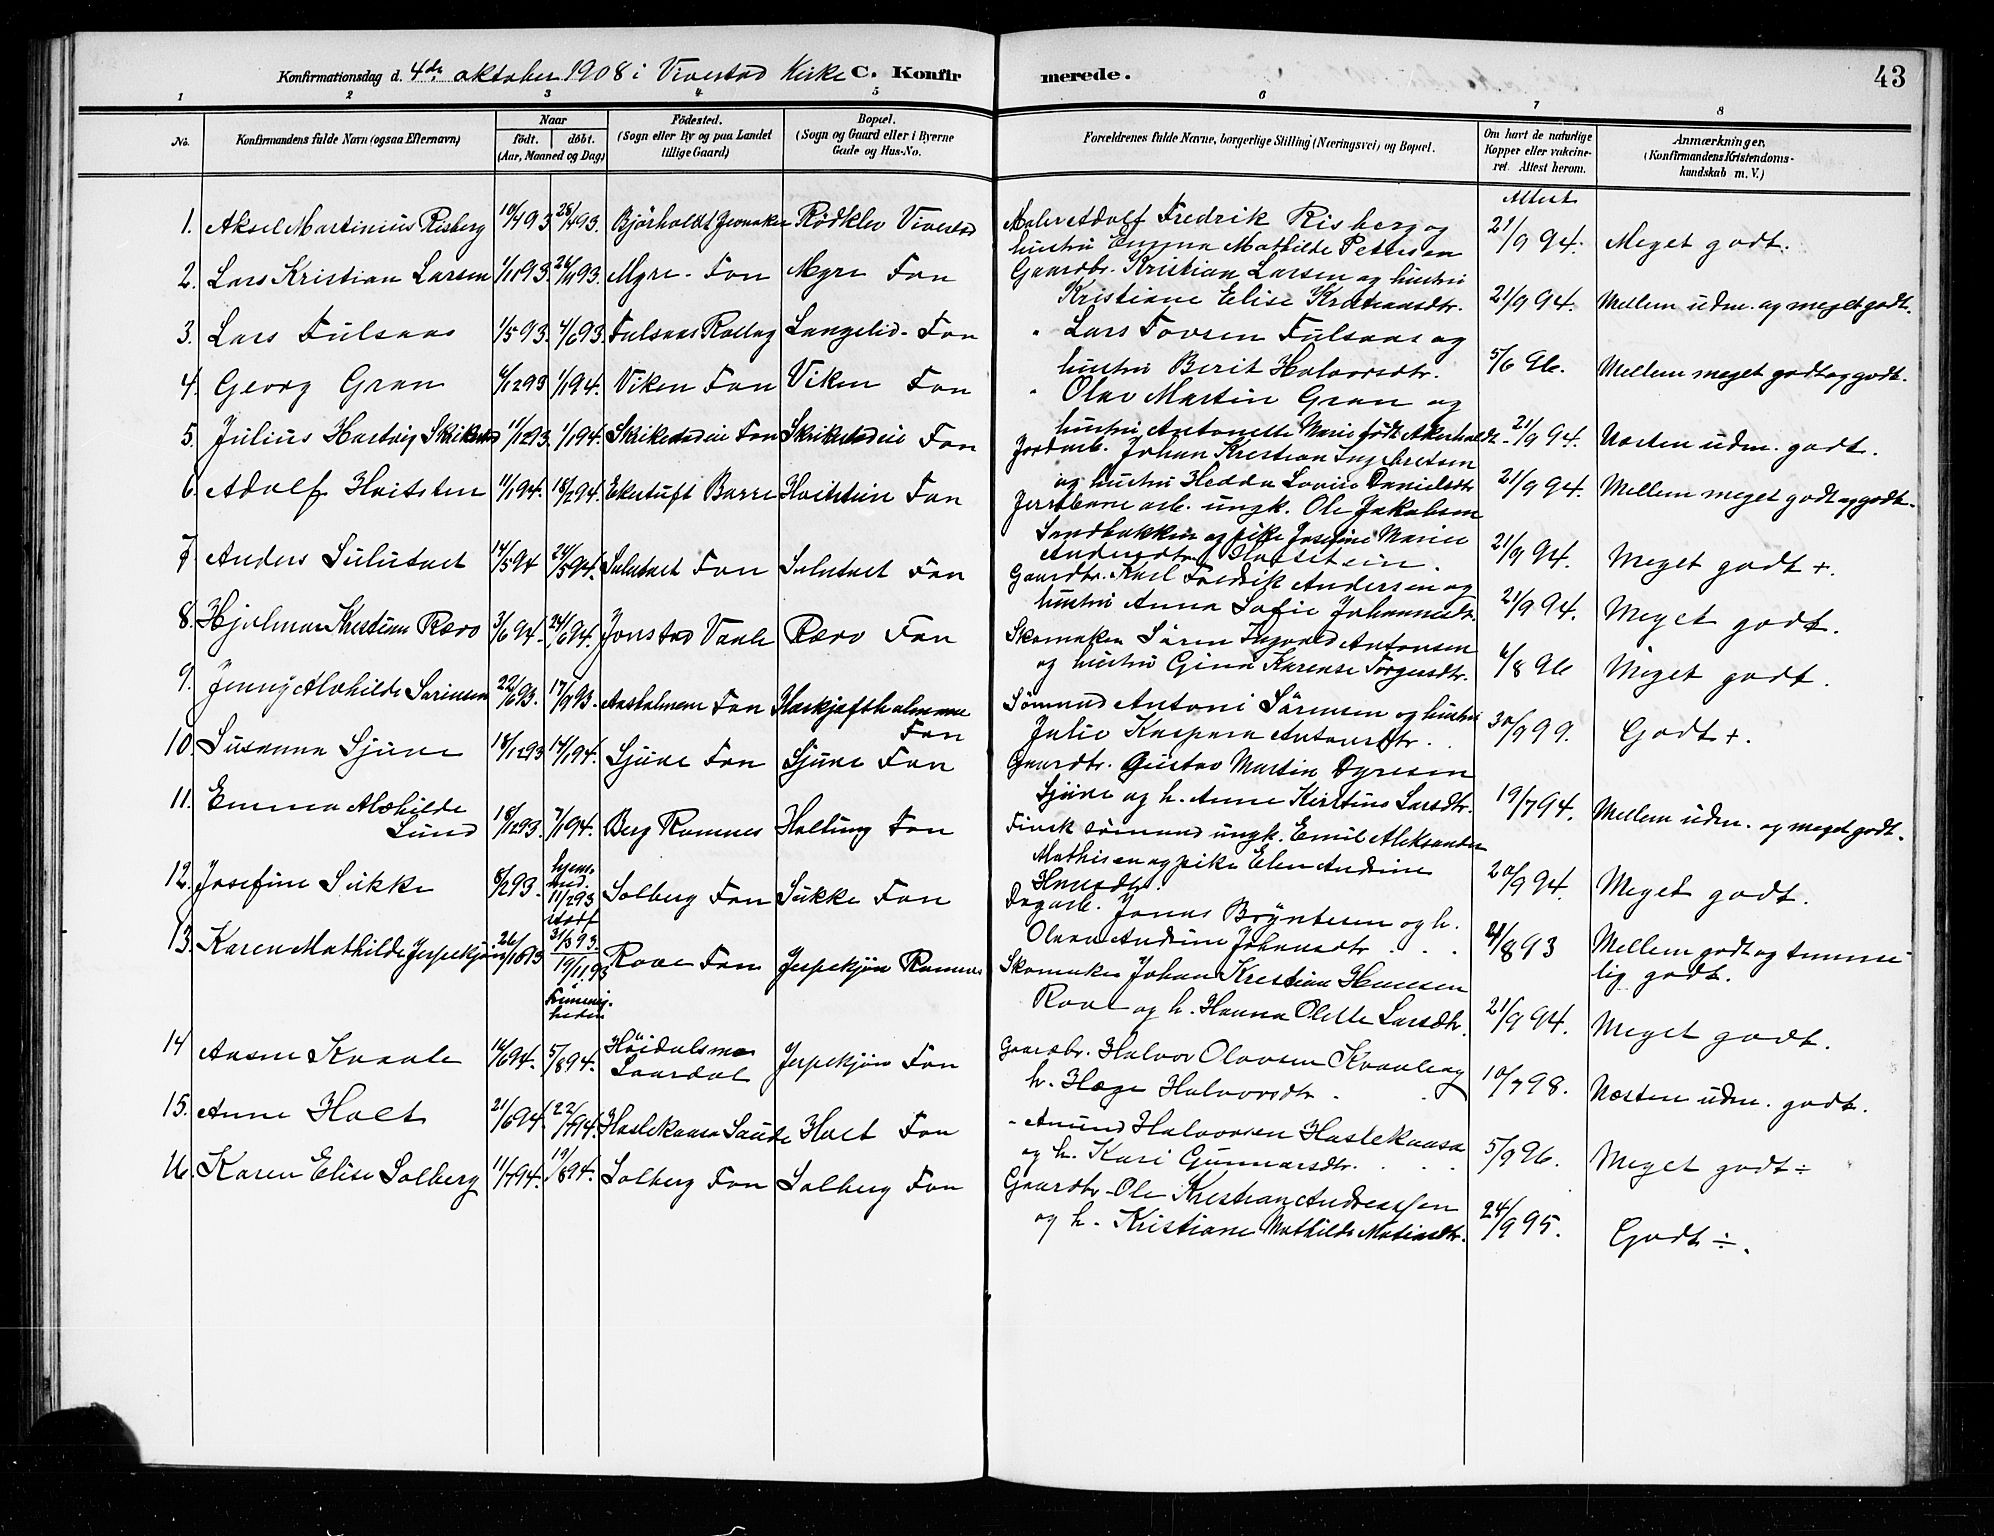 Konfirmationsdag d. 4de oktober 1908 i Vivestad kirke C. Konfirmerede. 43
1 2 3 4 5 6 7 8
No. Konfirmandens fulde Navn (ogsaa Efternavn) Naar födt. döbt. (Aar, Maaned og Dag) Födested. (Sogn eller By og paa Landet tillige Gaard) Bopæl. (Sogn og Gaard eller i Byerne Gade og Hus-No. Forældrenes fulde Navne, borgerlige Stilling (Næringsvei) og Bopæl. Om havt de naturlige Kopper eller vakcineret. Attest herom. Anmærkninger, (Konfirmandens Kristendomskundskab m. V.)
Attest
1. Aksel Martinius Risberg 10/4 93 Bjørholdt Jevnaker Rødklev Vivestad Maler Adolf Fredrik Risberg og
hustru Emma Mathilde Pettersen 21/9 94. Meget godt.
2. Lars Kristian Larsen 1/11 93 26/11 93. Myre Fon Myre Fon Gaardbr. Kristian Larsen og hustru
Kristiane Elise 21/9 94. Mellem udm. og meget godt.
3. Lars Fulsaas 1/5 93. 4/6 93 Fulsaas Rollag Langelid Fon " Lars Tovsen Fulsaas og
hustru Berit Halvorsdtr. 5/6 96. Mellem meget godt og godt.
4. Georg Gran 6/12 93 1/1 94. Viken Fon Viken Fon " Olav Martin Gran og
hustru Antonette Marie født Akerholdt 21/9 94. Næsten udm. godt.
5. Julius Hartvig Skrikestad 11/12 93. 1/1 94. Skrikestadeie Fon Skrikestadeie Fon Jordarb. Johan Kristian Ingebretsen
og hustru Hedda Lovise Danielsdtr 21/9 94. Mellem meget godt og godt.
6. Adolf Hvitsten 11/1 94. 18/2 94. Ekertuft Borre Fon Jernbane arb. ungk. Ole Jakobsen
Sandbakken og pike Josefine Marie
Andersdtr 21/9 94. Meget godt +.
7. Anders Sulutvet 14/5 94 Sulutvet Fon Sulutvet Fon Gaardbr. Karl Fredrik Andersen og
hustru Anna Sofie 21/9 94. Meget godt.
8. Hjalmar Kristian Rævo 3/6 94. 24/6 94. Jonstad Vaale Rævo Fon Skomaker Søren Ingvald Antonsen
og hustru Gina Karense Torgersdtr. 6/8 96 Meget godt.
9. Jenny Alvhilde Sørensen 22/6 93. 17/9 93. Aasholmene Fon Fon Sømand Antoni Sørensen og hustru
Julie Kaspara Antonsdtr. 30/9 99. Godt +.
10. Susanna Sjuve 18/12 93 14/1 94. Sjuve Fon Sjuve Fon Gaardbr. Gustav Martin Dyresen
Sjuve og h. Anne Kirstine Larsdtr. 19/7 94. Mellem udm. og meget godt.
11. Emma Alvhilde
Lund 18/12 93. 7/1 94. Berg Ramnes Holtung Fon sømand ungk. Emil Aleksander
Mathisen og pike Elen Andrine 20/9 94. Meget godt.
12. Josefine Sukke 8/2 93. hjem.
11/2 93
stadf
31/3 93. Solberg Fon Sukke Fon Dagarb. Jonas Bryntesen og h.
Olava Andrine Johansdtr 21/8 93 Mellem godt og temmelig godt.
13. Karen Mathilde Jerpekjøn 26/10 93 19/11 93
i
Roae Fon Jerpekjøn Ramnes Skomaker Johan Kristian Hansen
Roae og h. Hanna Olette Larsdtr. 21/9 94. Meget godt.
14 Aasne Kvaale 16/6 94. 5/8 94. Høidalsmo
Laardal Jerpekjøn Fon Gaardbr. Halvor Olavsen Kvaale og
h. Hæge Halvorsdtr. 10/7 98. Næsten udm. godt.
15. Anne Holt 21/6 94. 22/7 94. Haslekaasa Saude Holt Fon " Amund Halvorsen Haslekaasa
og h. Kari Gunnarsdtr. 5/9 96. Meget godt ÷
16. Karen Elise Solberg 11/7 94. 19/8 94. Solberg Fon Solberg Fon Gaardbr. Ole Kristian Andreassen
og h. Kristiane Mathilde 24/9 95. Godt ÷.